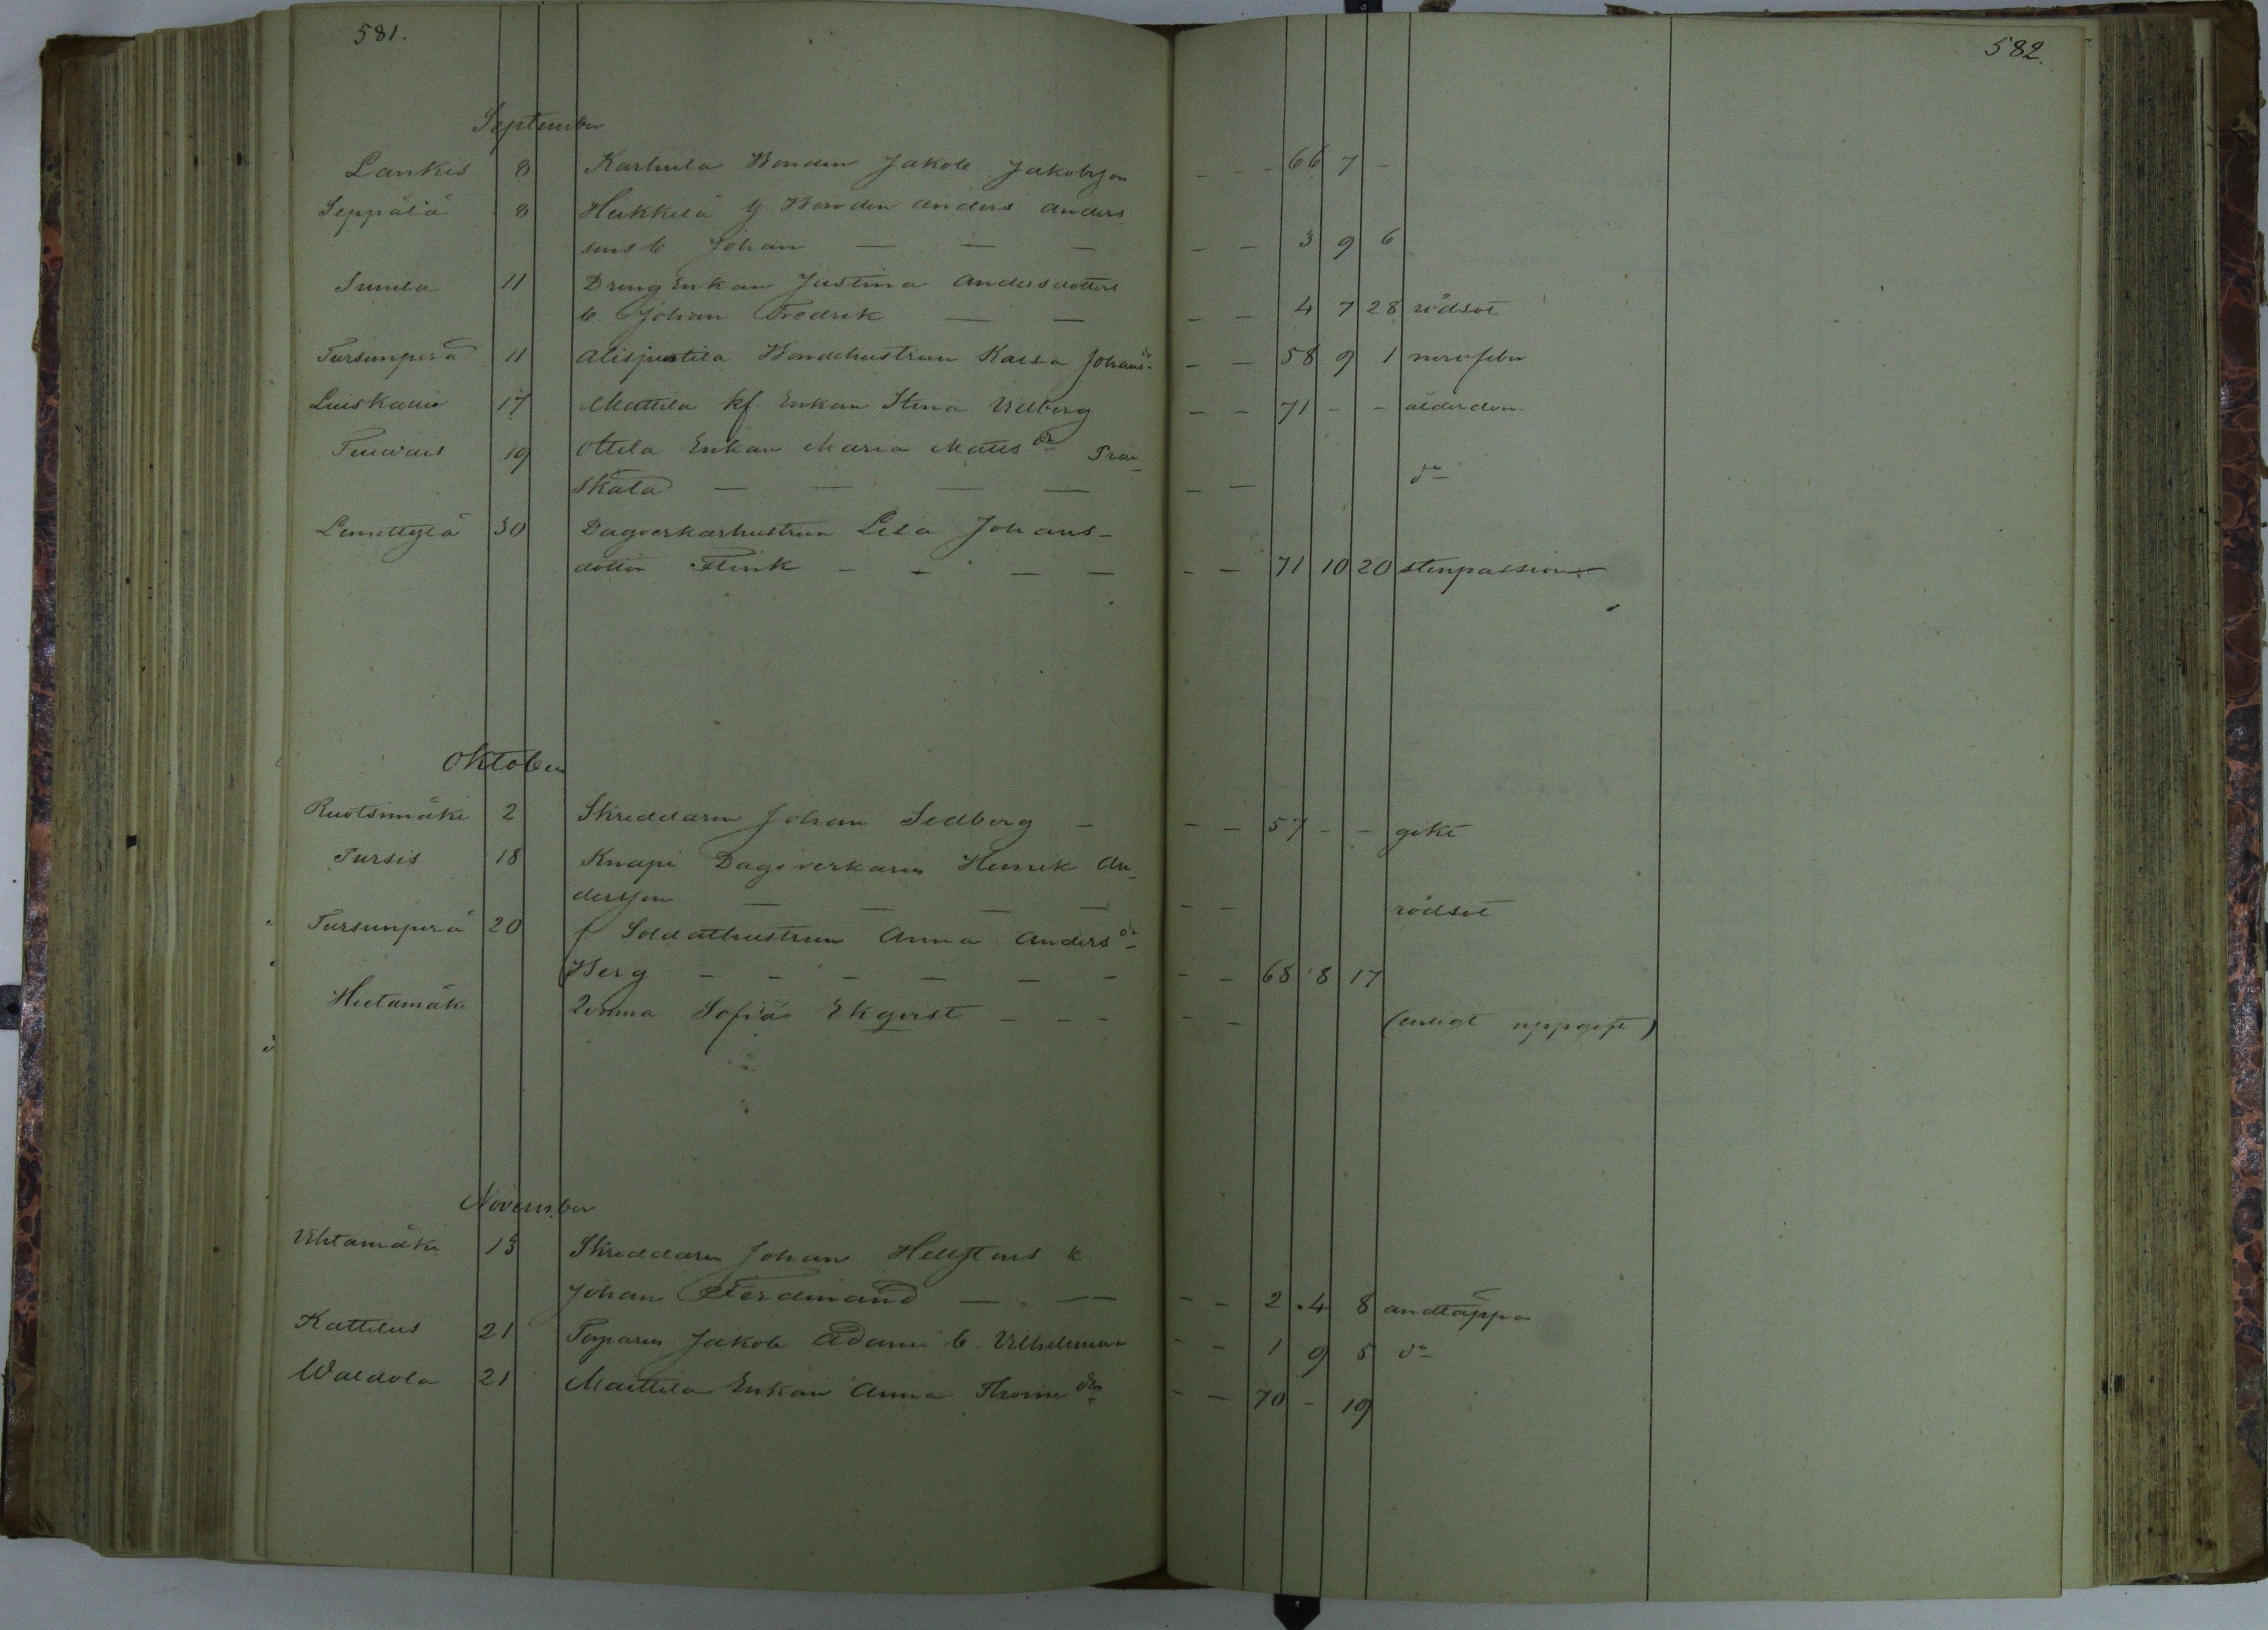 581.
582.
September
Lankis 8 Karhula Bonden Jakob Jakobsson - - - 66 7 -
Seppälä 8 Heikkilä Bonden Anders Anders
sons b. Johan — — — - - 3 9 6
Sunila 11 Drengenkan Justina Andersdotters
b. Johan Fredrik — — - - 4 7 28 rödsot
Tursunperä 11 Alisjustila Bondehustrun Kaisa Johansdr - - 58 9 1 nervfeber
Luiskallio 17 Mattila kf. Enkan Stina Vidberg - - 71 - - ålderdom
19 Ottila Enkan Maria Matts dr
skala — — — — - - do
Lemettylä 30 Dagsverkarhustrun Lisa Johans-
dotter Flink - - - - - - 71 10 20 stenpassion
Oktober
Ruotsinmäki 2 Skreddaren Johan Sedberg - - - 57 - - gikt
Tursis 18 Knapi Dagsverkaren Henrik An-
dersson — — — — - - rödsot
Tursunperä 20 f. Soldathustrun Anna Anders dr
Berg - - - - - - - - 68 8 17
Hietamäki Qvinna Sofia Ekqvist - - - - - (enligt uppgift)
November
Uhtamäki 13 Skreddaren Johan Hellstens b.
Johan Ferdinand — — - - 2 4 8 andtäppa
Kattelus 21 Torparen Jakob Adami b. Vilhelmina - - 1 9 5 do
Waldola 21 Mattila Enkan Anna Thome dr - - 70 - 19